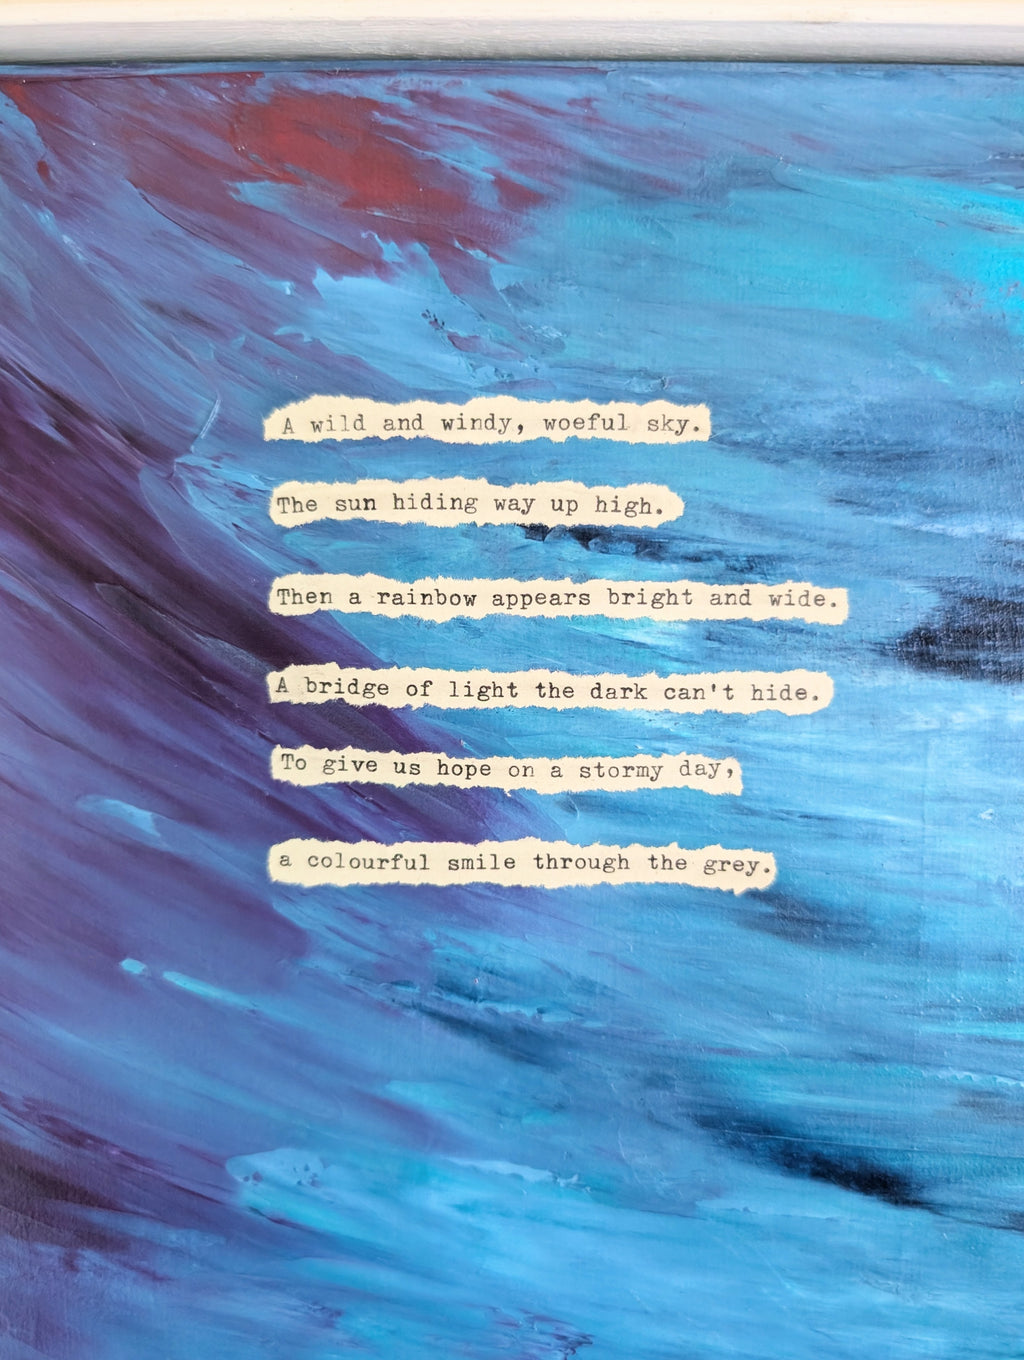 A wild and windy, woeful sky.
The sun hiding way up high.
Then a rainbow appears bright and wide.
A bridge of light the dark can't hide.
To give us hope on a stormy day,
a colourful smile through the grey.